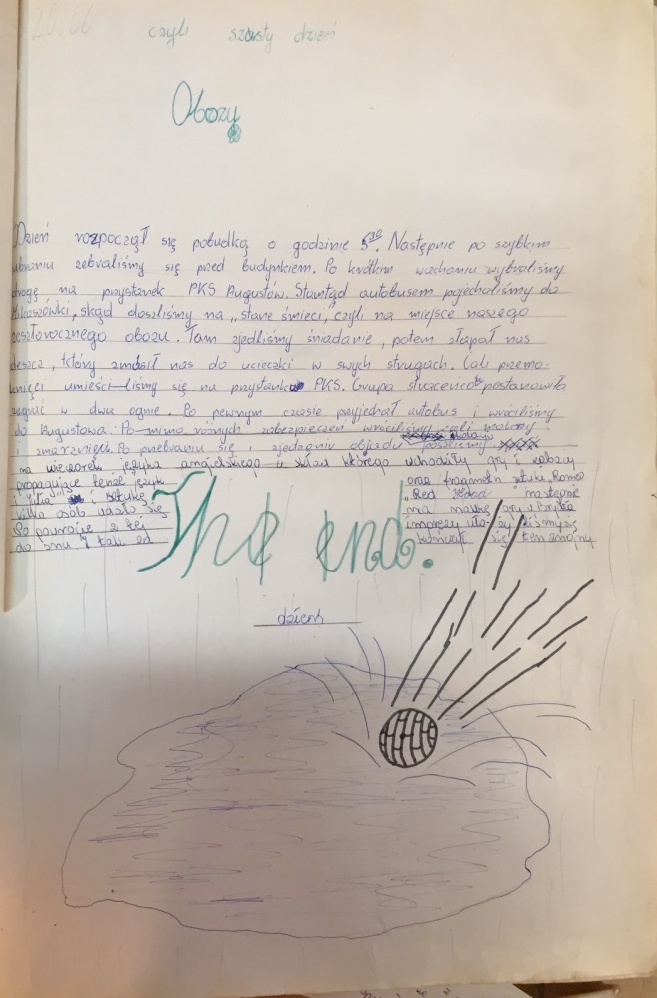 20.06 czyli szósty dzień
Obozu
Dzień rozpoczął się pobudką o godzinie 5³⁰. Następnie po szybkim
ubraniu zebraliśmy się przed budynkiem. Po krótkim wachaniu wybraliśmy
drogę na przystanek PKS Augustów. Stamtąd autobusem pojechaliśmy do
Mikaszówki, skąd doszliśmy na „stare śmieci", czyli na miejsce naszego
zeszłorocznego obozu. Tam zjedliśmy śniadanie, potem złapał nas
deszcz, który zmusił nas do ucieczki w swych strugach. Cali przemo-
knięci umieściliśmy się na przystanku PKS. Grupa straceńców postanowiła
zagrać w dwa ognie. Po pewnym czasie przyjechał autobus i wróciliśmy
do Augustowa. Po mimo różnych zabezpieczeń wróciliśmy cali mokrzy
i zmarznięci. Po przebraniu się i zjedzeniu obiadu poszliśmy
na wieczorek języka angielskiego w skład którego wchodziły gry i zabawy
propagujące tenże język oraz fragment sztuki „Romeo
i Julia" i sztukę „Red Hood" następnie
kilka osób udało się na małą grę w brydża
Po powrocie z tej imprezy uło- żyliśmy się
do snu I tak od kończył się ten znojny
The end.
dzień